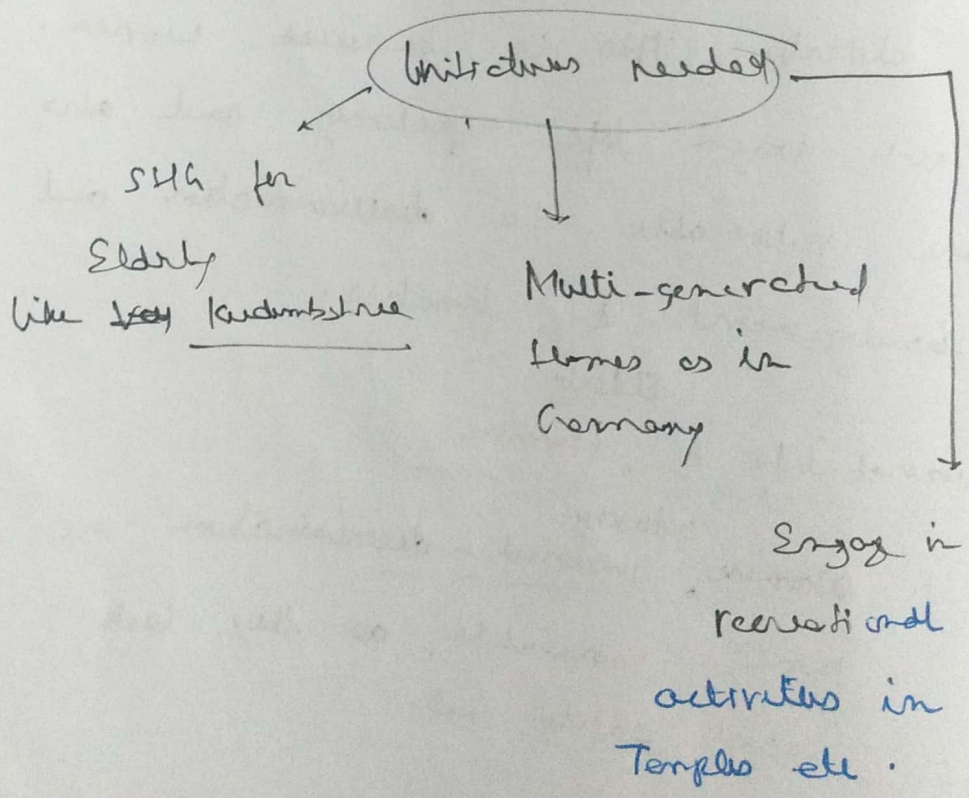 Initiatives needed
SHG for
Elderly
like Kudumbshree
Multi-generational
Homes as in
Germany
Engage in
recreational
activites in
Temples etc.